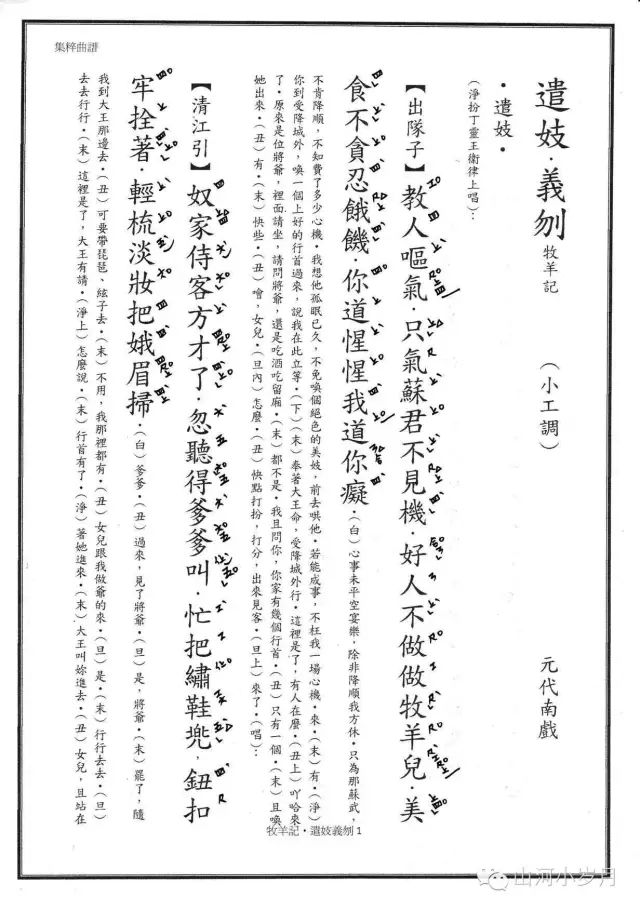 集粹曲譜
遣妓·義刎 牧羊記 （小工調） 元代南戲
·遣妓·
（淨扮丁靈王衛律上唱）：
【出隊子】教人嘔氣·只氣蘇君不見機·好人不做做牧羊兒·美
食不貪忍餓饑·你道惺惺我道你癡·（白）心事未平空宴樂，除非降順我方休·只為那蘇武，
不肯降順，不知費了多少心機·我想他孤眠已久，不免喚個絕色的美妓，前去哄他·若能成事，不枉我一場心機·來·（末）有·（淨）
你到受降城外，喚一個上好的行首過來，說我在此立等·（下）（末）奉著大王命，受降城外行·這裡是了，有人在麼·（丑上）吖哈來
了·原來是位將爺，裡面請坐，請問將爺，還是吃酒吃留廂·（末）都不是·我且問你，你家有幾個行首·（丑）只有一個·（末）且喚
她出來·（丑）有·（末）快些·（丑）噲，女兒·（旦內）怎麼·（丑）快點打扮，打分，出來見客·（旦上）來了·（唱）：
【清江引】奴家侍客方才了·忽聽得爹爹叫·忙把繡鞋兜，鈕扣
牢拴著·輕梳淡妝把娥眉掃·（白）爹爹·（丑）過來，見了將爺·（旦）是，將爺·（末）罷了，隨
我到大王那邊去·（丑）可要帶琵琶、絃子去·（末）不用，我那裡都有·（丑）女兒跟我做爺的來·（旦）是·（末）行行去去·（旦）
去去行行·（末）這裡是了，大王有請·（淨上）怎麼說·（末）行首有了·（淨）著她進來·（末）大王叫妳進去·（丑）女兒，且站在
牧羊記·遣妓義刎 1
山河小岁月